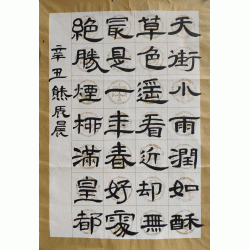 天街小雨潤如酥
草色遥看近却無
最是一年春好處
絕勝煙柳滿皇都
辛丑熊
晨